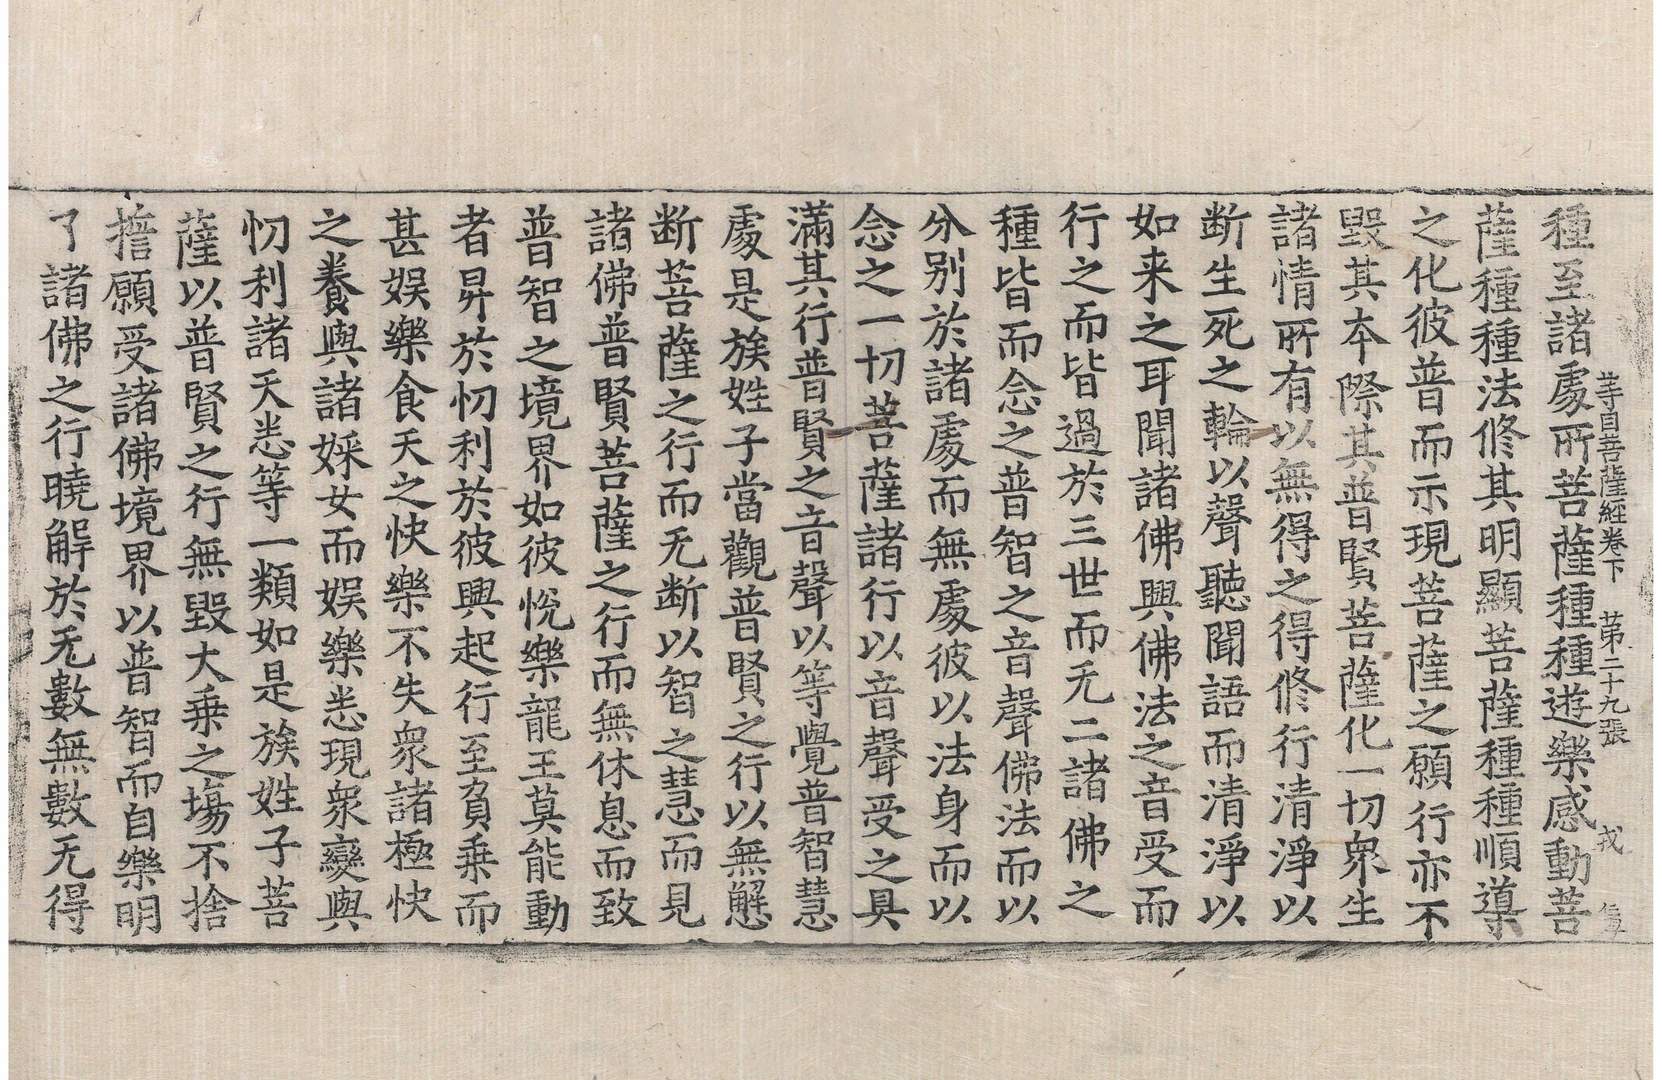 等目菩薩經卷下 第二十九張 戎
種至諸處所菩薩種種遊樂感動菩
薩種種法修其明顯菩薩種種順導
之化彼普而示現菩薩之願行亦不
毀其本際其普賢菩薩化一切衆生
諸情所有以無得之得修行清淨以
断生死之輪以聲聽聞語而清淨以
如来之耳聞諸佛興佛法之音受而
行之而皆過於三世而无二諸佛之
種皆而念之普智之音聲佛法而以
分别於諸處而無處彼以法身而以
念之一切菩薩諸行以音聲受之具
滿其行普賢之音聲以等覺普智慧
處是族姓子當觀普賢之行以無懈
断菩薩之行而无断以智之慧而見
諸佛普賢菩薩之行而無休息而致
普智之境界如彼悅樂龍王莫能動
者昇於忉利於彼興起行至貟乗而
甚娱樂食天之快樂不失衆諸極快
之養與諸婇女而娱樂悉現衆變與
忉利諸天悉等一類如是族姓子菩
薩以普賢之行無毀大乗之場不捨
擔願受諸佛境界以普智而自樂明
了諸佛之行曉解於无數無數无得